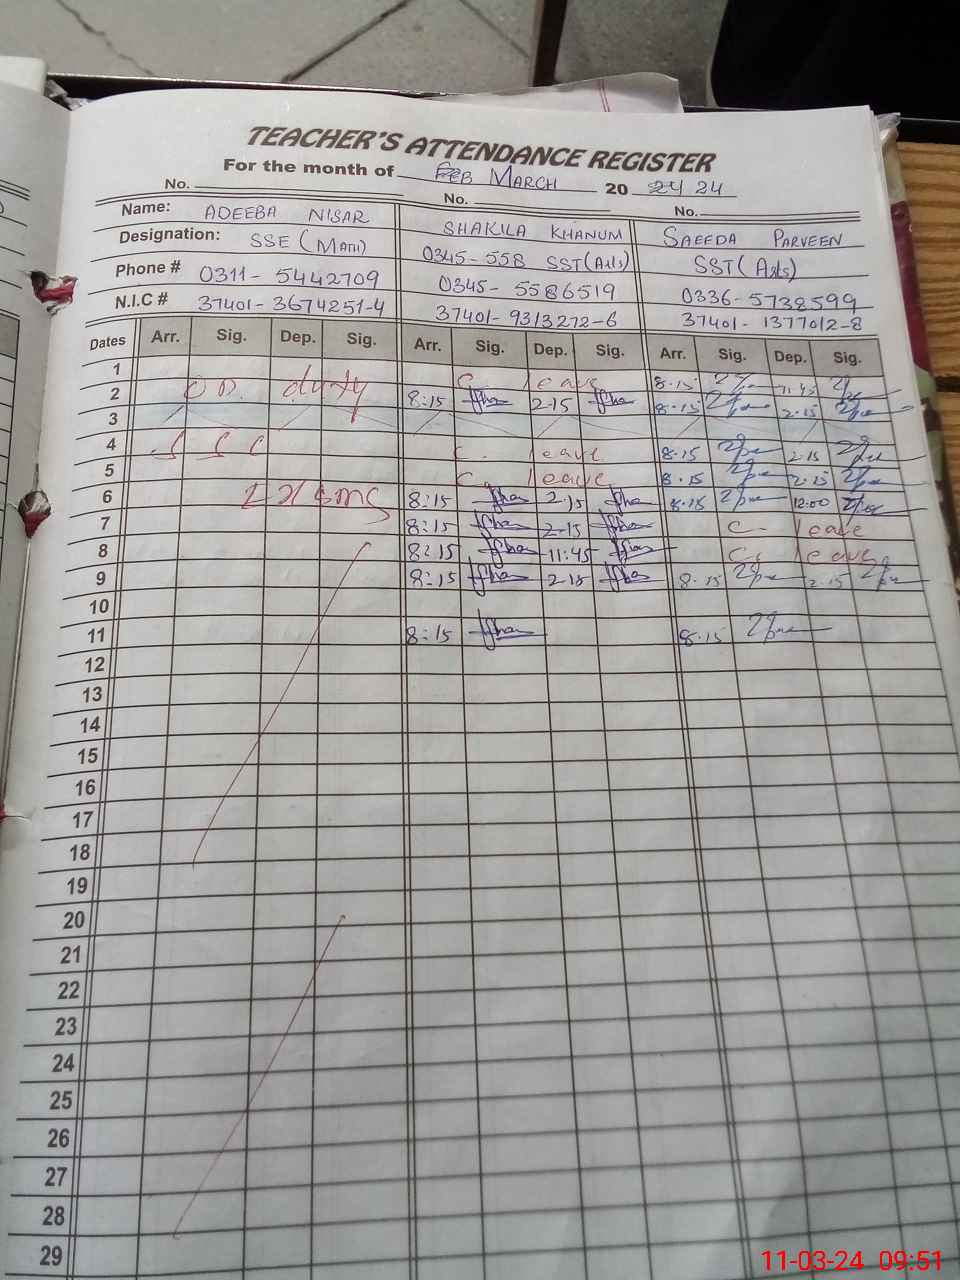 TEACHER'S ATTENDANCE REGISTER
For the month of FEB MARCH 20 24 24
No. No. No.
Name: ADEEBA NISAR SHAKILA KHANUM SAEEDA PARVEEN
Designation: SSE (Math) 0345-558 SST(Arts) SST(Arts)
Phone # 0311-5442709 0345-5586519 0336-5738599
N.I.C # 37401-3674251-4 37401-9313272-6 37401-1377012-8
Dates Arr. Sig. Dep. Sig. Arr. Sig. Dep. Sig. Arr. Sig. Dep. Sig.
1 C. leave 8.15 11.45
2 on duty 8:15 2-15 8.15 2.15
3
4 S S C C. leave 8.15 2.15
5 C. leave 8.15 2.15
6 8:15 2-15 8.15 12:00
7 8:15 2-15 C. leave
8 8:15 11:45 C. leave
9 8:15 2-15 8.15 2.15
10
11 8:15 8.15
12
13
14
15
16
17
18
19
20
21
22
23
24
25
26
27
28
29
11-03-24 09:51